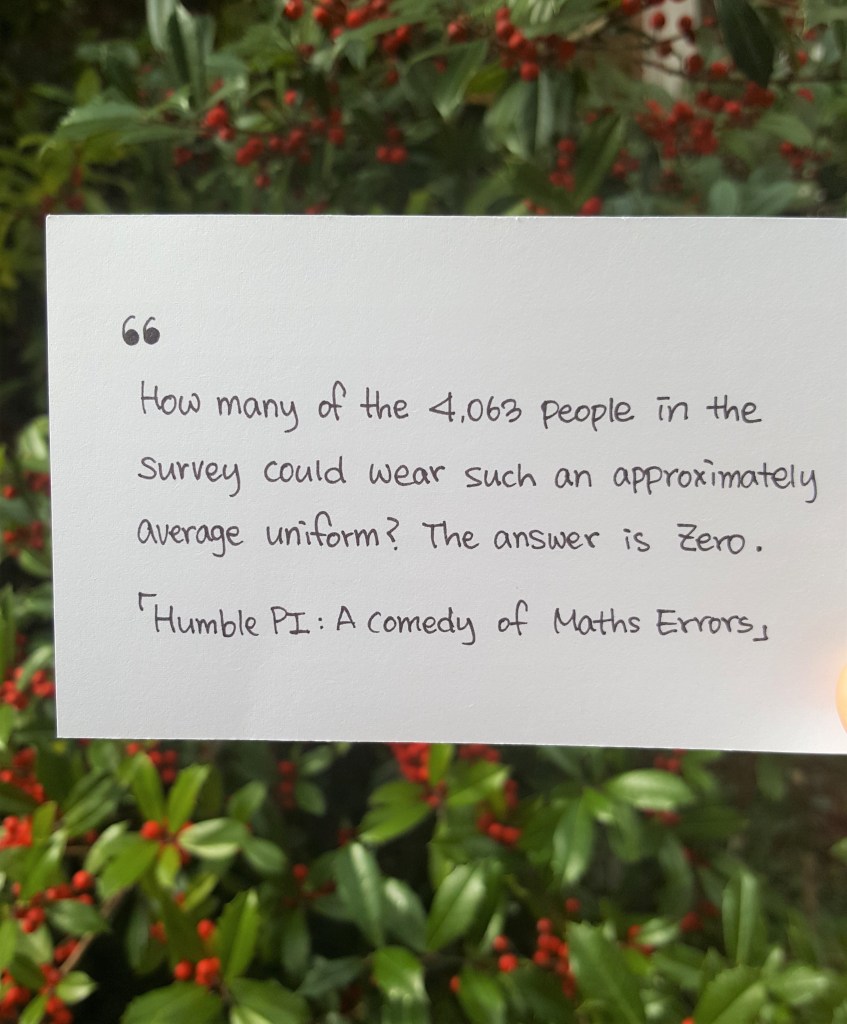 “
How many of the 4,063 people in the
survey could wear such an approximately
average uniform? The answer is Zero.
「Humble PI: A comedy of Maths Errors」